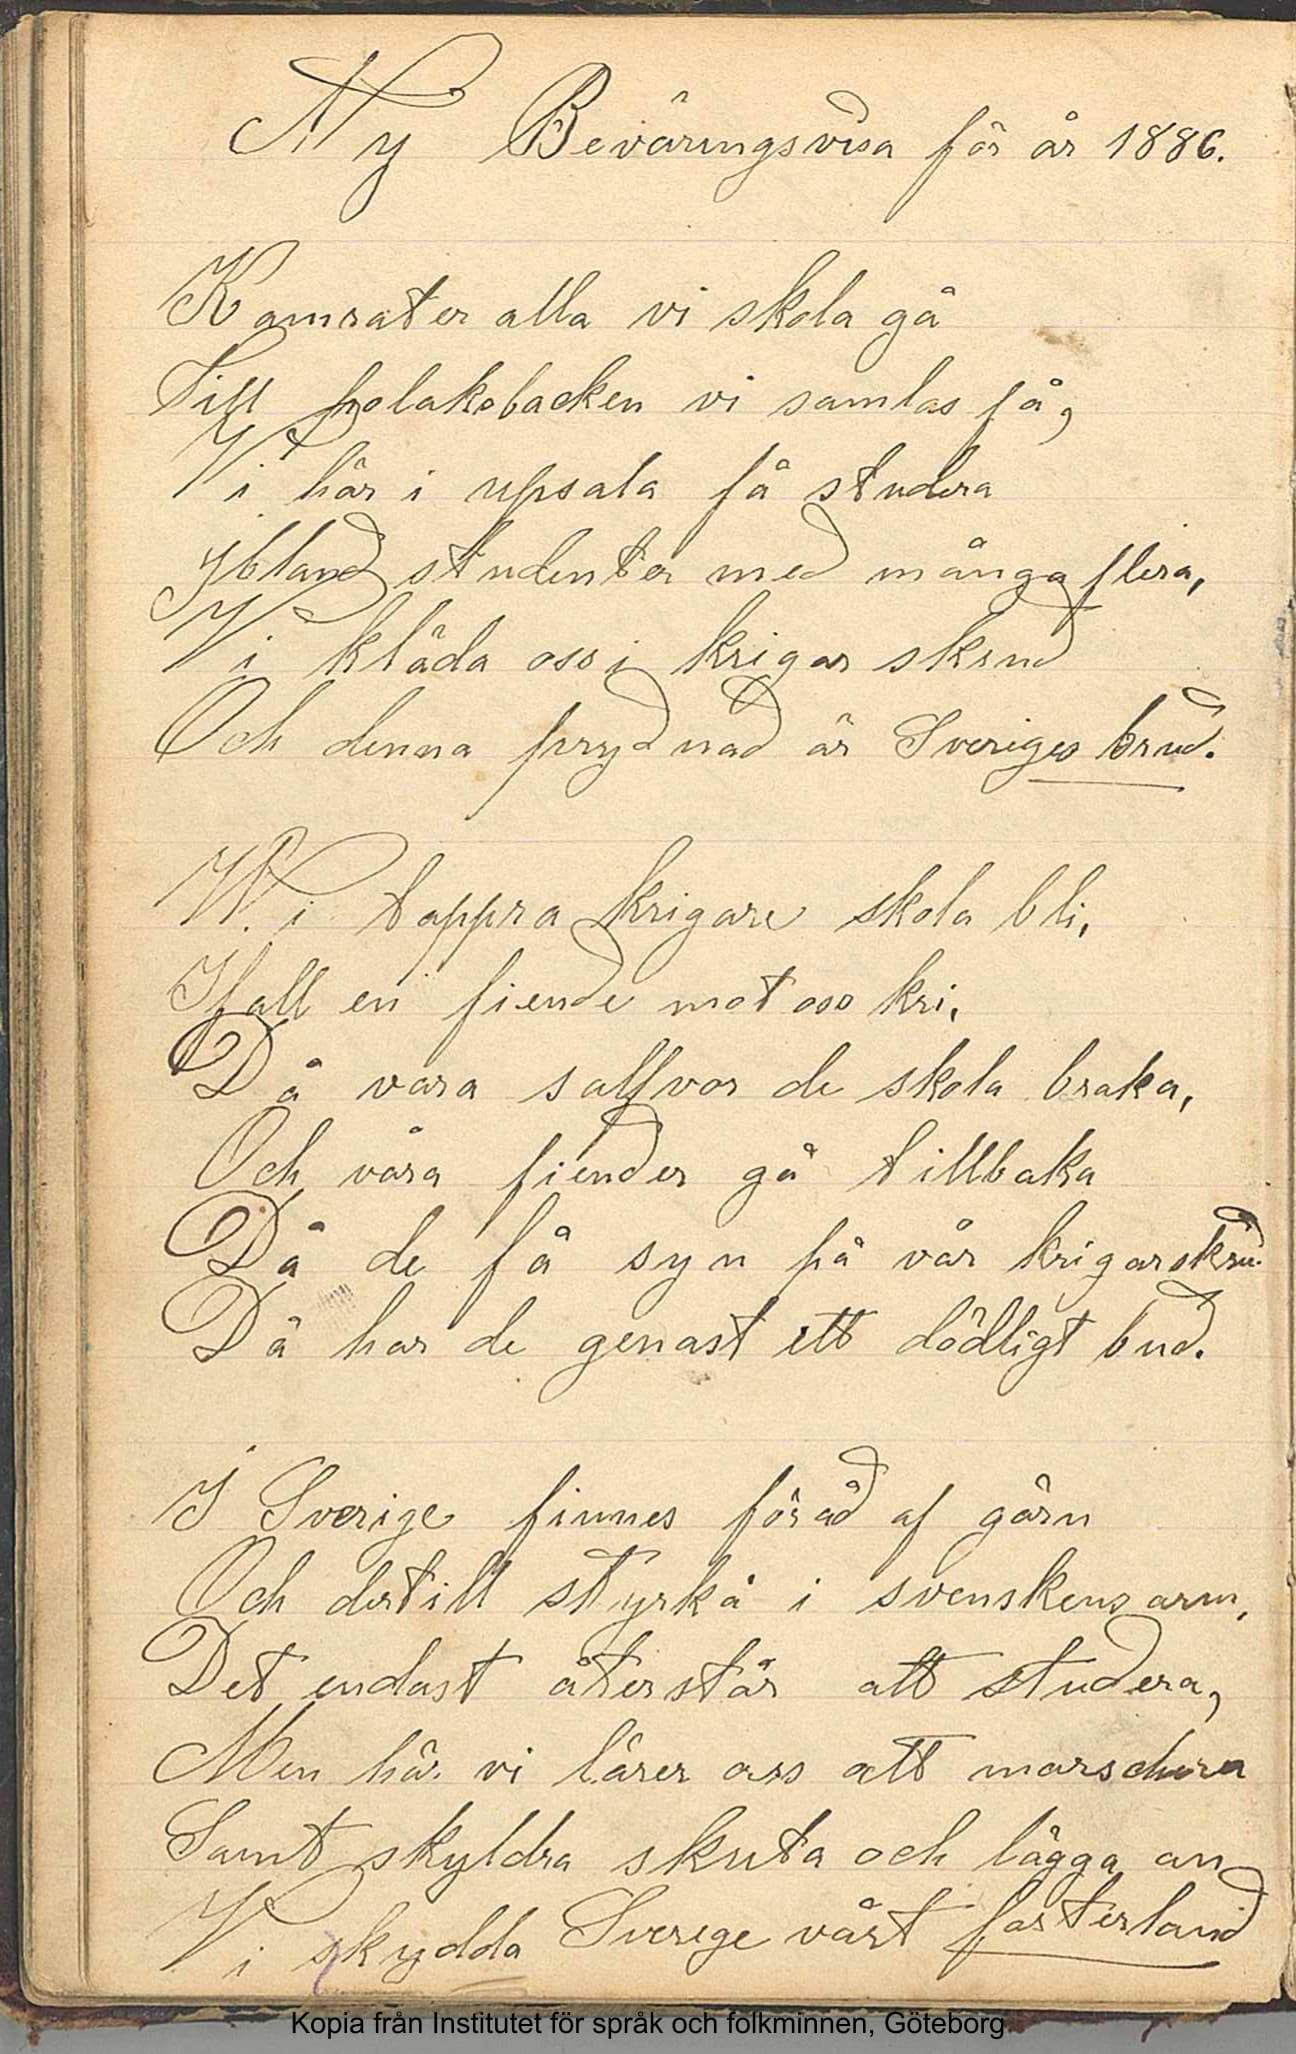 Ny Beväringsvisa för år 1886.
Kamrater alla vi skola gå
Till polaksbacken vi samlas på,
Vi här i upsala få studera
Ibland studenter med många flera,
Vi kläda oss i krigar skrud
Och denna prydnad är Sveriges brud.
Wi tappra krigare skola bli,
Ifall en fiende mot oss kri,
Då vara salfvor de skola braka,
Och våra fiender gå tillbaka
Då de få syn på vår krigarskrud
Då har de genast ett dödligt bud.
I Sverige finnes föråd af gärn
Och dertill styrka i svenskens arm,
Det endast återstår att studera,
Men här vi lärer oss att marschera
Samt skyldra skuta och lägga an
Vi skydda Sverege vårt fosterland
Kopia från Institutet för språk och folkminnen, Göteborg